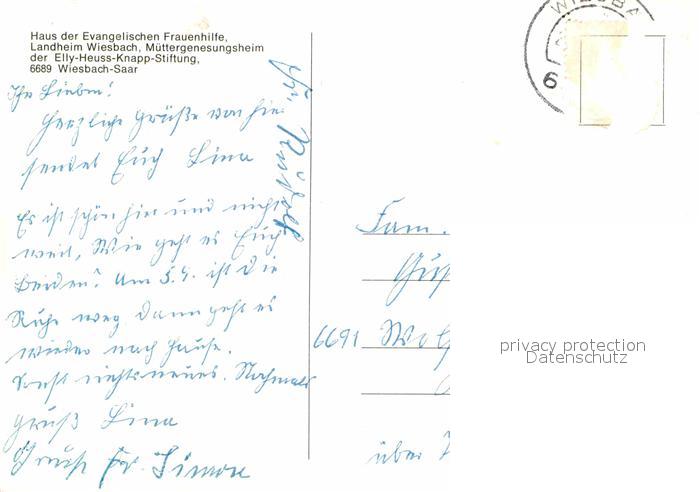 Haus der Evangelischen Frauenhilfe,
Landheim Wiesbach, Müttergenesungsheim
der Elly-Heuss-Knapp-Stiftung,
6689 Wiesbach-Saar
Ihr Lieben!
Herzliche Grüße von hier
sendet Euch Lina
Es ist schön hier und nicht
weit. Wie geht es Euch
beiden? Am 5.4. ist die
Ruhe weg dann geht es
wieder nach Hause.
Sonst nichts neues. Nochmals
Gruß Lina
Gruß Fr. Simon
WIESBA
6
Fam.
6691 Wol
über
privacy protection
Datenschutz